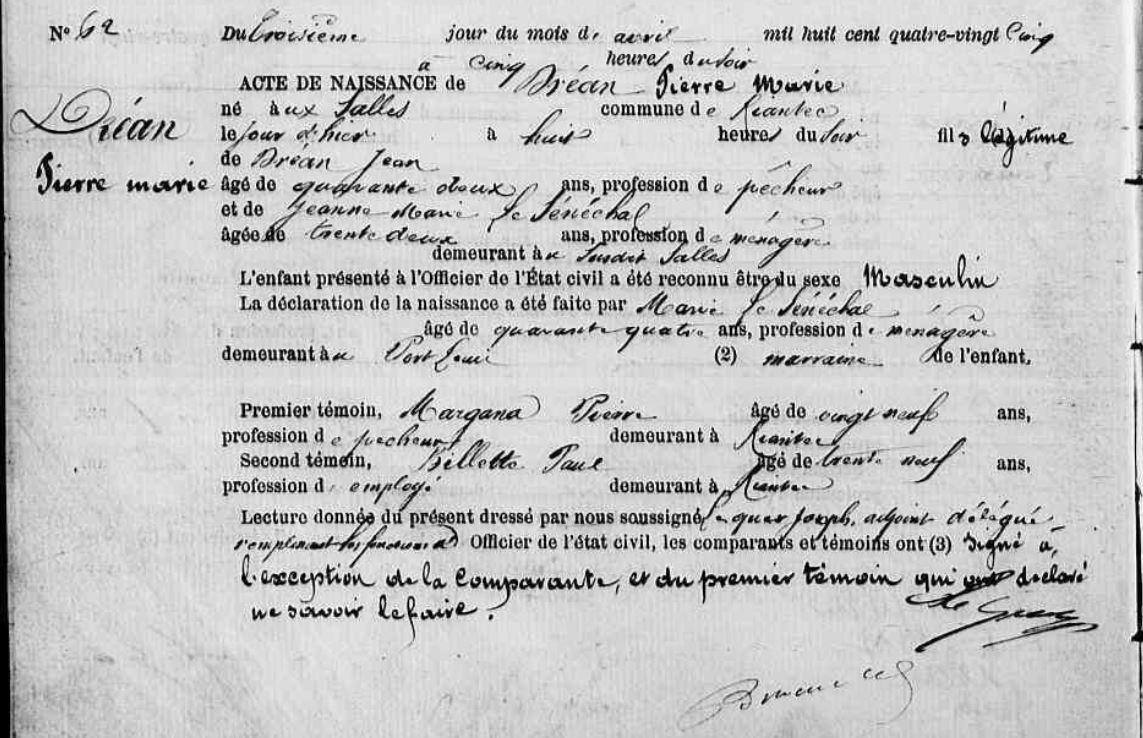 N° 62 Du troisième jour du mois de avril mil huit cent quatre-vingt Cinq
à cinq heures du soir
ACTE DE NAISSANCE de Dréan Pierre Marie
né à aux Salles commune de Riantec
le jour d'hier à huit heures du soir fils légitime
Dréan
de Dréan Jean
Pierre marie
âgé de quarante deux ans, profession de pêcheur
et de Jeanne Marie Le Sénéchal
âgée de trente deux ans, profession de ménagère
demeurant à susdit Salles
L'enfant présenté à l'Officier de l'État civil a été reconnu être du sexe Masculin
La déclaration de la naissance a été faite par Marie Le Sénéchal
âgé de quarante quatre ans, profession de ménagère
demeurant à Port Louis (2) marraine de l'enfant.
Premier témoin, Margana Pierre âgé de vingt neuf ans,
profession de pecheur demeurant à Riantec
Second témoin, Billette Paul âgé de trente neuf ans,
profession d employé demeurant à Riantec
Lecture donnée du présent dressé par nous soussigné Le quer Joseph, adjoint délégué
remplissant les fonctions d' Officier de l'état civil, les comparants et témoins ont (3) signé à
l'exception de la Comparante, et du premier témoin qui ont declaré
ne savoir le faire.
Le Quer